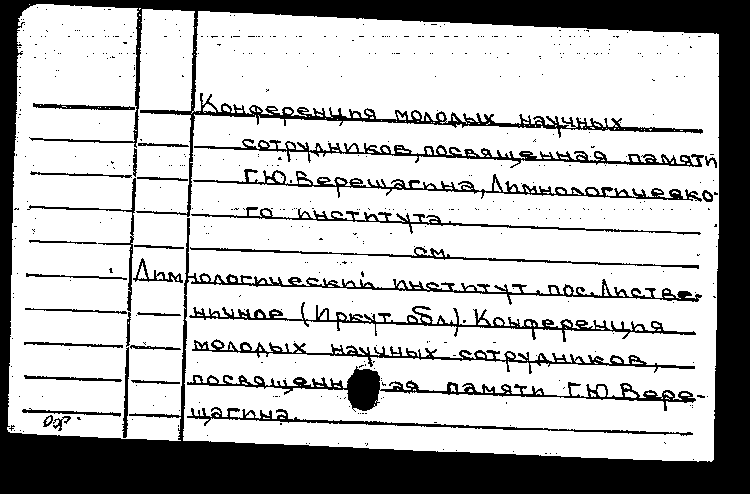 Конференция молодых научных
сотрудников, посвященная памяти
Г.Ю.Верещагина, Лимнологическо-
го института.
см.
Лимнологический институт. пос. Листве-
ничное (Иркут. обл.). Конференция
молодых научных сотрудников,
посвященная памяти Г.Ю.Вере-
щагина.